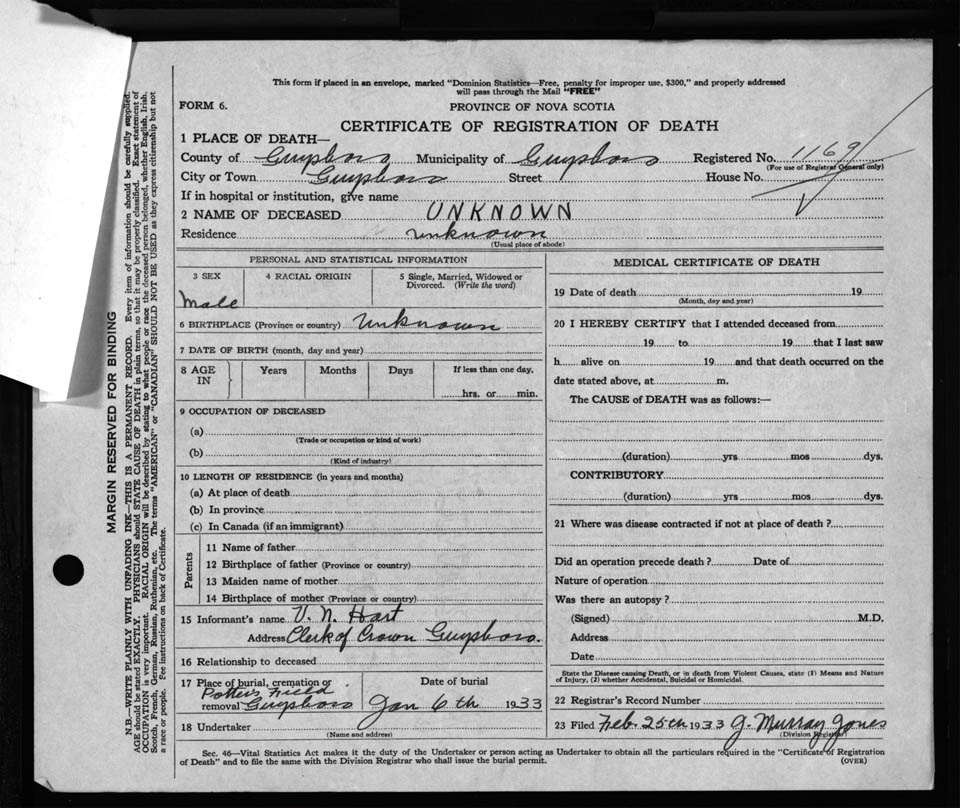 This form if placed in an envelope, marked "Dominion Statistics—Free, penalty for improper use, $300," and properly addressed
will pass through the Mail "FREE"
FORM 6.
PROVINCE OF NOVA SCOTIA
CERTIFICATE OF REGISTRATION OF DEATH
1 PLACE OF DEATH—
County of Guysboro Municipality of Guysboro Registered No. 1169
(For use of Registrar General only)
City or Town Guysboro Street House No.
If in hospital or institution, give name
2 NAME OF DECEASED UNKNOWN
Residence unknown
(Usual place of abode)
PERSONAL AND STATISTICAL INFORMATION
3 SEX 4 RACIAL ORIGIN 5 Single, Married, Widowed or
Divorced. (Write the word)
Male
6 BIRTHPLACE (Province or country) Unknown
7 DATE OF BIRTH (month, day and year)
8 AGE Years Months Days If less than one day,
IN hrs. or min.
9 OCCUPATION OF DECEASED
(a)
(Trade or occupation or kind of work)
(b)
(Kind of industry)
10 LENGTH OF RESIDENCE (in years and months)
(a) At place of death
(b) In province
(c) In Canada (if an immigrant)
Parents
11 Name of father
12 Birthplace of father (Province or country)
13 Maiden name of mother
14 Birthplace of mother (Province or country)
15 Informant's name V. N. Hart
Address Clerk of Crown Guysboro.
16 Relationship to deceased
17 Place of burial, cremation or Date of burial
Potters Field
removal Guysboro Jan 6th 1933
18 Undertaker
(Name and address)
MEDICAL CERTIFICATE OF DEATH
19 Date of death 19
(Month, day and year)
20 I HEREBY CERTIFY that I attended deceased from
19 to 19 that I last saw
h alive on 19 and that death occurred on the
date stated above, at m.
The CAUSE of DEATH was as follows:—
(duration) yrs mos dys.
CONTRIBUTORY
(duration) yrs mos dys.
21 Where was disease contracted if not at place of death?
Did an operation precede death? Date of
Nature of operation
Was there an autopsy?
(Signed) M.D.
Address
Date
State the Disease causing Death, or in death from Violent Causes, state (1) Means and Nature
of Injury, (2) whether Accidental, Suicidal or Homicidal.
22 Registrar's Record Number
23 Filed Feb. 25th 1933 J. Murray Jones
(Division Registrar)
Sec. 46—Vital Statistics Act makes it the duty of the Undertaker or person acting as Undertaker to obtain all the particulars required in the "Certificate of Registration
of Death" and to file the same with the Division Registrar who shall issue the burial permit.
(OVER)
MARGIN RESERVED FOR BINDING
N.B.—WRITE PLAINLY WITH UNFADING INK—THIS IS A PERMANENT RECORD. Every item of information should be carefully supplied.
AGE should be stated EXACTLY. PHYSICIANS should STATE CAUSE OF DEATH in plain terms, so that it may be properly classified. Exact statement of
OCCUPATION is very important. RACIAL ORIGIN will be described by stating to what people or race the deceased person belonged, whether English, Irish,
Scotch, French, German, Russian, Ruthenian, etc. The terms "AMERICAN" or "CANADIAN" SHOULD NOT BE USED as they express citizenship but not
a race or people. Fee instructions on back of Certificate.